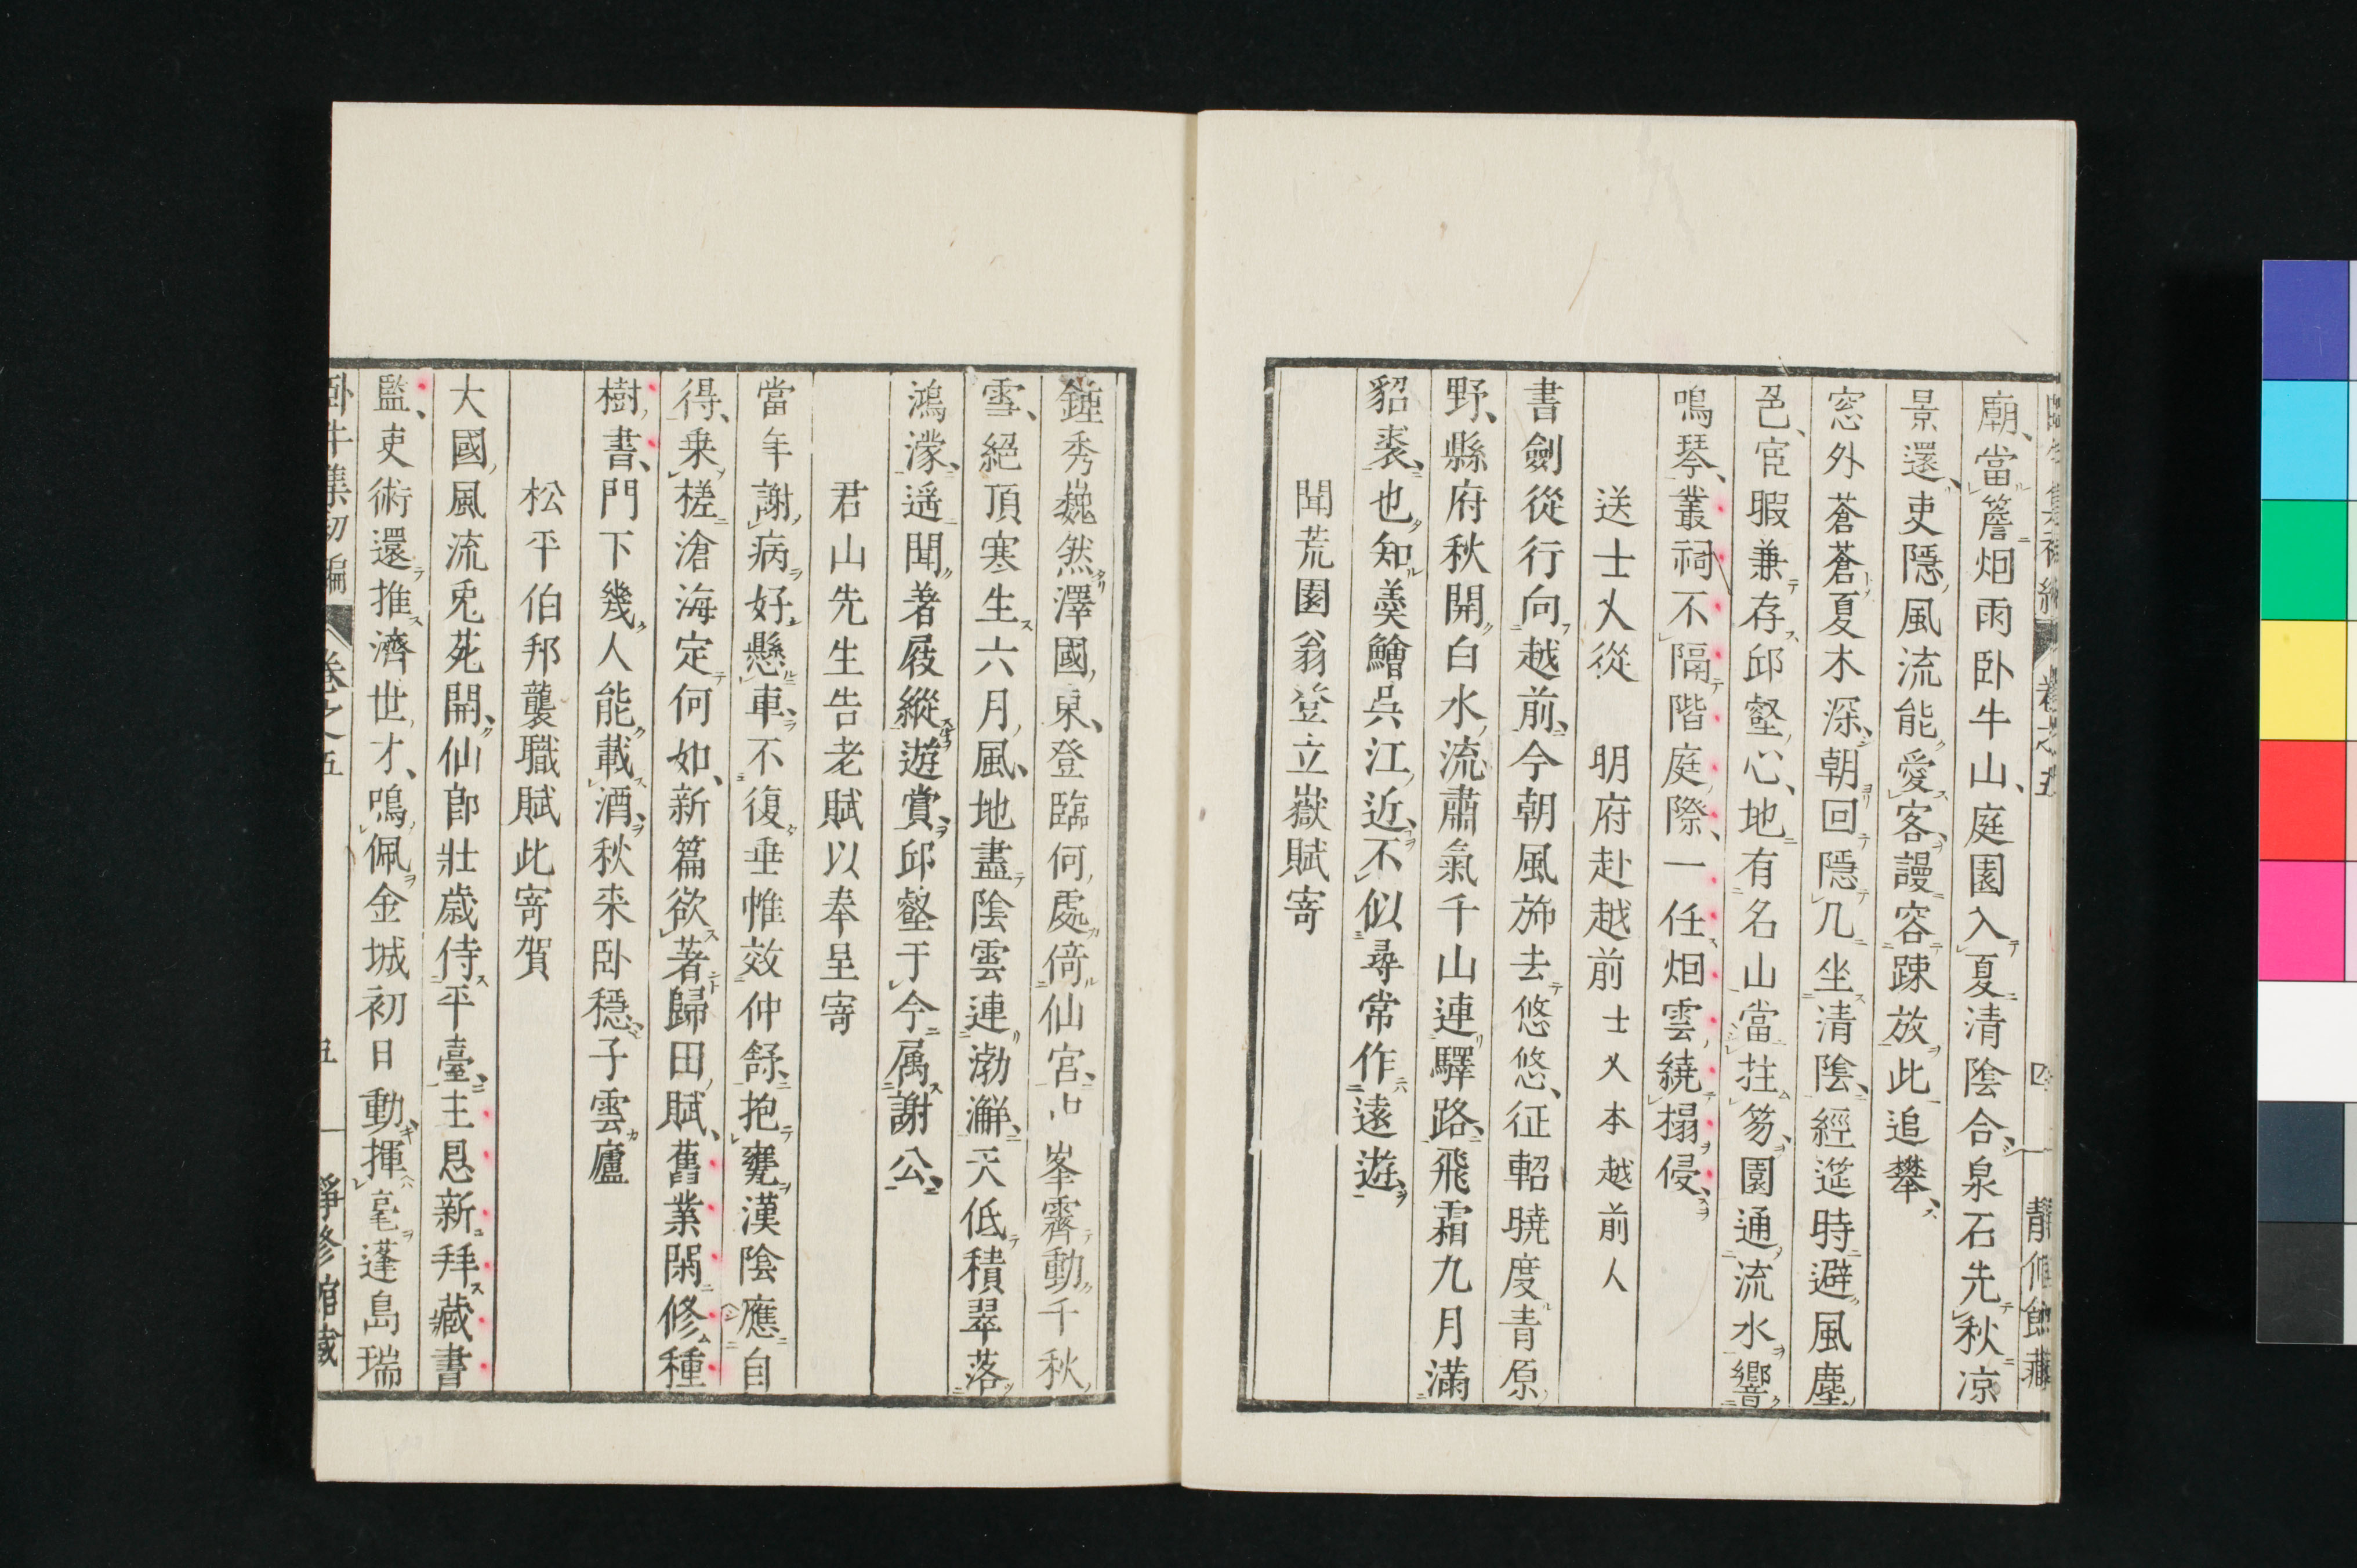 廟當簷烟雨卧牛山庭園入夏清陰合泉石先秋凉
景還吏隱風流能愛客謾容踈放此追攀
窓外蒼蒼夏木深朝回隱几坐清陰經莚時避風塵
邑宦暇兼存邱壑心地有名山當拄笏園通流水響
鳴琴叢祠不隔階庭際一任烟雲繞榻侵
送士乂從 明府赴越前 士乂本越前人
書劍從行向越前今朝風斾去悠悠征軺曉度青原
野縣府秋開白水流肅氣千山連驛路飛霜九月滿
貂裘也知羮鱠呉江近不似尋常作遠遊
聞荒園翁登立嶽賦寄
鍾秀巍然澤國東登臨何處倚仙宮峯霽動千秋
雪絕頂寒生六月風地盡陰雲連渤澥天低積翠落
鴻濛遥聞著屐縱遊賞邱壑于今属謝公
君山先生告老賦以奉呈寄
當年謝病好懸車不復垂帷效仲舒抱甕漢陰應自
得乗槎滄海定何如新篇欲著歸田賦舊業閑修種
樹書門下幾人能載酒秋来卧穩子雲廬
松平伯邦襲職賦此寄賀
大國風流兎苑開仙郎壯歳侍平臺主恩新拜藏書
監吏術還推濟世才鳴佩金城初日動揮毫蓬島瑞
卧牛集初編 卷之五 五 靜修館藏